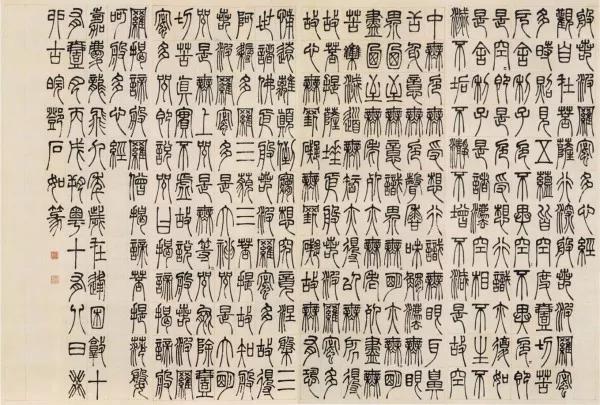 般若波羅密多心經
觀自在菩薩行深般若波羅密
多時照見五蘊皆空度壹切苦
厄舍利子色不異空空不異色色即
是空空即是色受想行識亦復如
是舍利子是諸法空相不生不
滅不垢不淨不增不減是故空
中無色無受想行識無眼耳鼻
舌身意無色聲香味觸法無眼
界乃至無意識界無無明亦無無明
盡乃至無老死亦無老死盡無
苦集滅道無智亦無得以無所
得故菩提薩埵依般若波羅密多
故心無罣礙無罣礙故無有恐
怖遠離顛倒夢想究竟涅槃三
世諸佛依般若波羅密多故得
阿耨多羅三藐三菩提故知般
若波羅密多是大神咒是大明
咒是無上咒是無等等咒能除壹
切苦真實不虛故說般若波羅
密多咒即說咒曰揭諦揭諦般
羅揭諦般羅僧揭諦菩提薩婆
呵般若多心經
嘉慶龍飛九年歲在逢困敦十
有壹月丙戌朔粵十有八日癸
卯古皖鄧石如篆